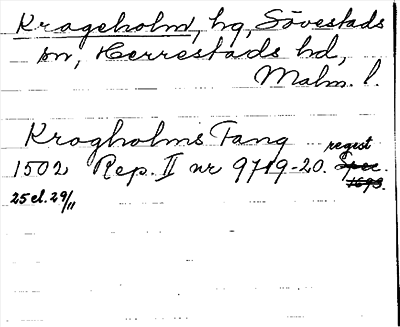 Krageholm, hg, Sövestads
sn, Herrestads hd,
Malm. l.
Krogholms Fang regest
1502 Rep. II nr 9719-20. Spec.
1693.
25 el. 29/11